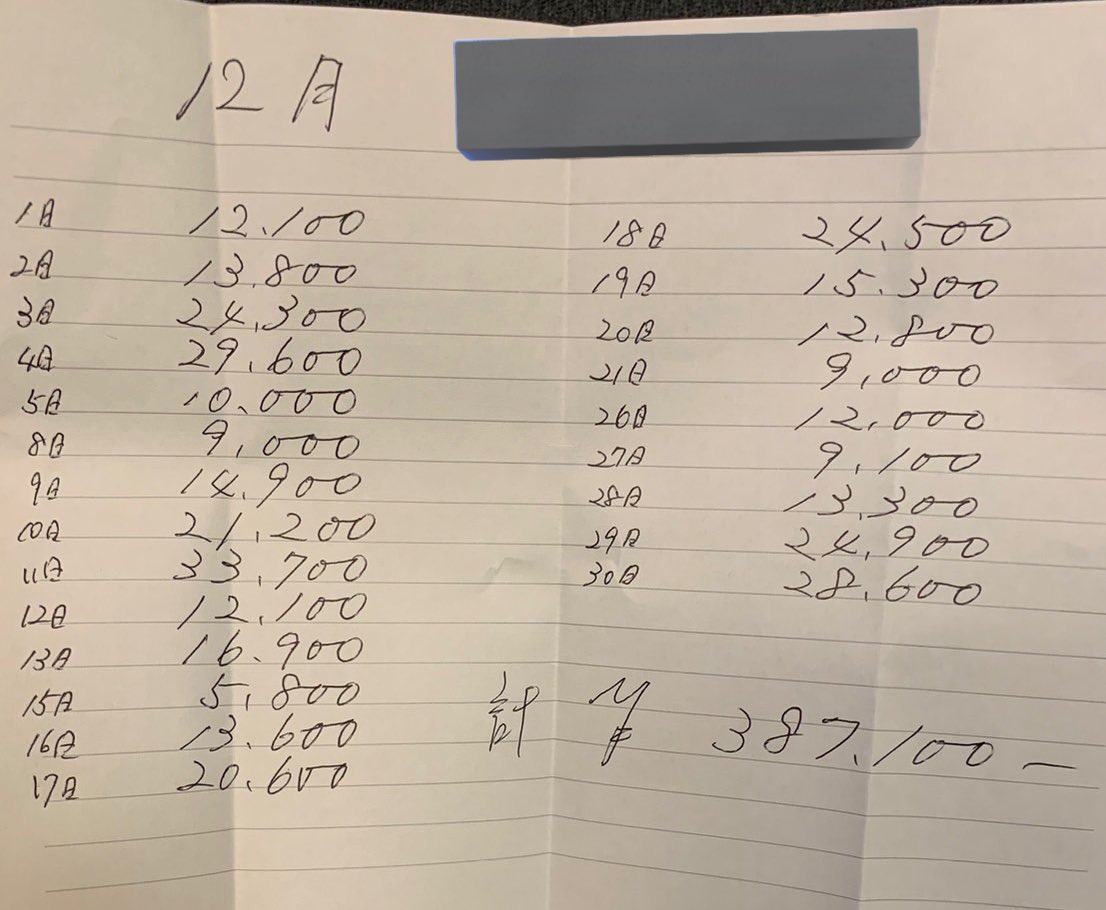 12月
1日 12.100
2日 13.800
3日 24,300
4日 29.600
5日 10.000
8日 9,000
9日 14.900
10日 21.200
11日 33.700
12日 12.100
13日 16.900
15日 5,800
16日 13.600
17日 20.600
18日 24.500
19日 15.300
20日 12.800
21日 9,000
26日 12,000
27日 9.100
28日 13.300
29日 24,900
30日 28.600
計 ¥ 387.100-